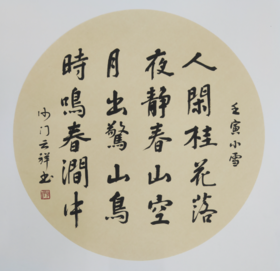 壬寅小雪
人閑桂花落
夜静春山空
月出驚山鳥
時鳴春澗中
沙门云祥书